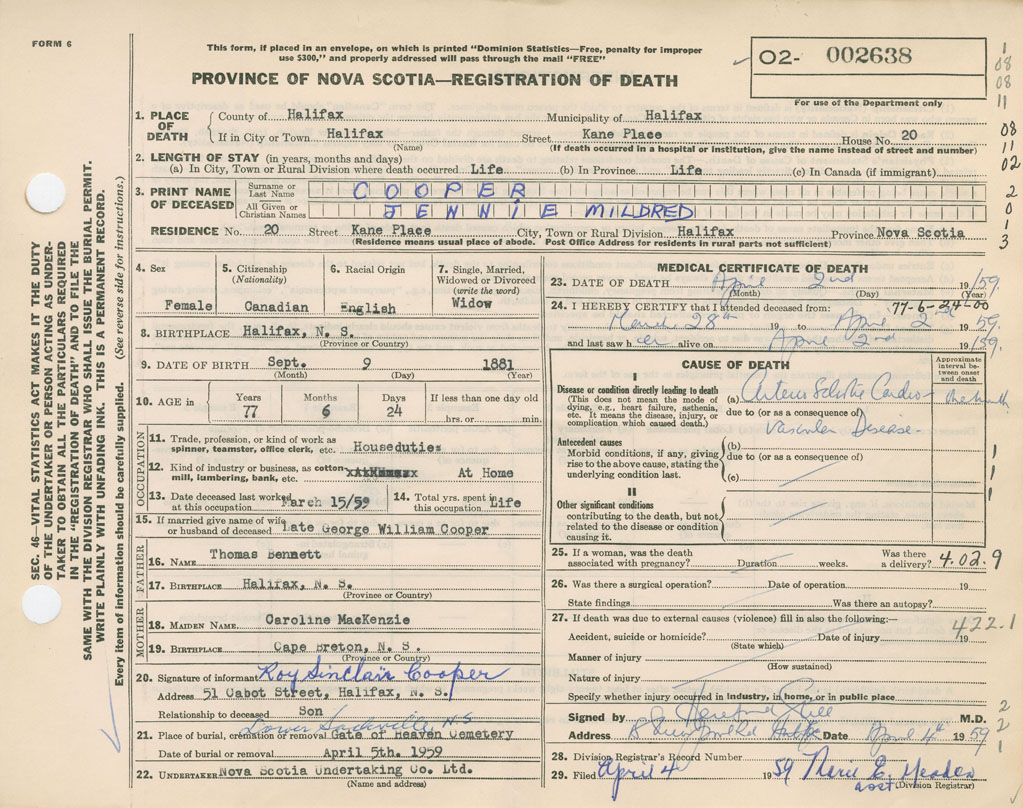 FORM 6
This form, if placed in an envelope, on which is printed "Dominion Statistics—Free, penalty for improper
use $300," and properly addressed will pass through the mail "FREE"
PROVINCE OF NOVA SCOTIA—REGISTRATION OF DEATH
02- 002638
For use of the Department only
1
08
08
11
08
11
02
2
0
1
3
SEC. 46—VITAL STATISTICS ACT MAKES IT THE DUTY
OF THE UNDERTAKER OR PERSON ACTING AS UNDER-
TAKER TO OBTAIN ALL THE PARTICULARS REQUIRED
IN THE "REGISTRATION OF DEATH" AND TO FILE THE
SAME WITH THE DIVISION REGISTRAR WHO SHALL ISSUE THE BURIAL PERMIT.
WRITE PLAINLY WITH UNFADING INK. THIS IS A PERMANENT RECORD.
Every item of information should be carefully supplied. (See reverse side for instructions.)
1. PLACE OF DEATH County of Halifax Municipality of Halifax
If in City or Town Halifax Street Kane Place House No. 20
(Name) (If death occurred in a hospital or institution, give the name instead of street and number)
2. LENGTH OF STAY (in years, months and days)
(a) In City, Town or Rural Division where death occurred Life (b) In Province Life (c) In Canada (if immigrant)
3. PRINT NAME OF DECEASED Surname or Last Name COOPER
All Given or Christian Names JENNIE MILDRED
RESIDENCE No. 20 Street Kane Place City, Town or Rural Division Halifax Province Nova Scotia
(Residence means usual place of abode. Post Office Address for residents in rural parts not sufficient)
4. Sex
Female
5. Citizenship
(Nationality)
Canadian
6. Racial Origin
English
7. Single, Married,
Widowed or Divorced
(write the word)
Widow
8. BIRTHPLACE Halifax, N. S.
(Province or Country)
9. DATE OF BIRTH Sept. 9 1881
(Month) (Day) (Year)
10. AGE in Years 77 Months 6 Days 24 If less than one day old
hrs. or min.
OCCUPATION
11. Trade, profession, or kind of work as
spinner, teamster, office clerk, etc. Houseduties
12. Kind of industry or business, as cotton
mill, lumbering, bank, etc. At Home
13. Date deceased last worked
at this occupation March 15/59
14. Total yrs. spent in
this occupation Life
15. If married give name of wife
or husband of deceased Late George William Cooper
FATHER
16. NAME Thomas Bennett
17. BIRTHPLACE Halifax, N. S.
(Province or Country)
MOTHER
18. MAIDEN NAME Caroline MacKenzie
19. BIRTHPLACE Cape Breton, N. S.
(Province or Country)
20. Signature of informant Roy Sinclair Cooper
Address 51 Cabot Street, Halifax, N. S.
Relationship to deceased Son
Lower Sackville, N S
21. Place of burial, cremation or removal Gate of Heaven Cemetery
Date of burial or removal April 5th. 1959
22. UNDERTAKER Nova Scotia Undertaking Co. Ltd.
(Name and address)
MEDICAL CERTIFICATE OF DEATH
23. DATE OF DEATH April 2nd 19/59.
(Month) (Day) (Year)
24. I HEREBY CERTIFY that I attended deceased from: 77-6-24-00
March 28th 19 to April 2nd 19 59.
and last saw her alive on April 2nd 19/59.
CAUSE OF DEATH
Approximate
interval be-
tween onset
and death
I
Disease or condition directly leading to death
(This does not mean the mode of
dying, e.g., heart failure, asthenia,
etc. It means the disease, injury, or
complication which caused death.)
(a) Arterio Sclerotic Cardio- One month
due to (or as a consequence of)
Vascular Disease.
Antecedent causes
Morbid conditions, if any, giving
rise to the above cause, stating the
underlying condition last.
(b)
due to (or as a consequence of)
(c)
II
Other significant conditions
contributing to the death, but not
related to the disease or condition
causing it.
1
1
1
25. If a woman, was the death
associated with pregnancy? Duration weeks. Was there
a delivery? 4.02.9
26. Was there a surgical operation? Date of operation 19
State findings Was there an autopsy?
27. If death was due to external causes (violence) fill in also the following:— 422.1
Accident, suicide or homicide? Date of injury 19
(State which)
Manner of injury
(How sustained)
Nature of injury
Specify whether injury occurred in industry, in home, or in public place
2
Signed by M.D.
Address Halifax Date April 4th 1959
2
1
28. Division Registrar's Record Number
29. Filed April 4 1959 Marie E. Meaden
asst (Division Registrar)